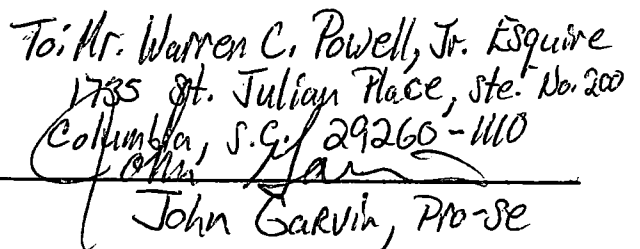 To: Mr. Warren C. Powell, Jr. Esquire
1735 St. Julian Place, ste. No. 200
Columbia, S.C. 29260-1110
John Garvin
John Garvin, Pro-se